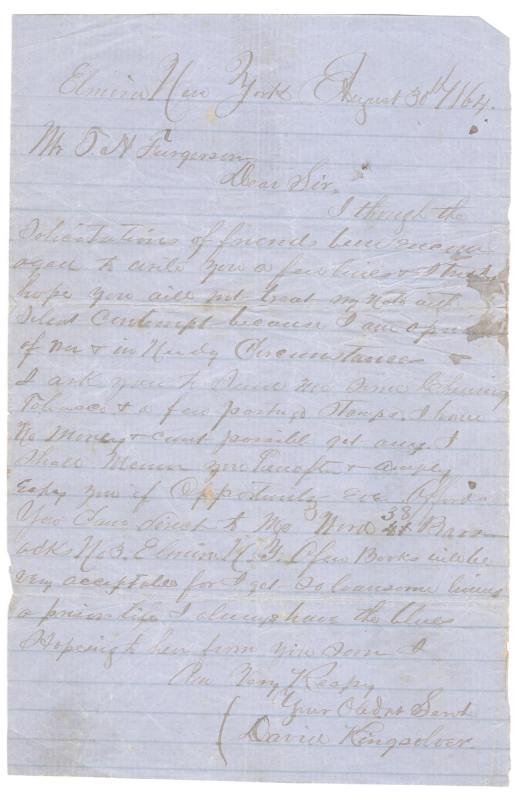 Elmira New York August 30th/64.
Mr T. H Furgerson
Dear Sir.
I though the
Solicitations of friends been encour
aged to write you a few lines &
hope you will not treat my note with
Silent Contempt because I am a
of war & in Needy Circumstances &
I ask you to Send me Some Chewing
Tobacco & a few postage Stamps. I have
No Money & cant possible get any. I
Shall you & amply
repay you if Opportunity ever affords
You Can direct to Me Ward 38 Barr
acks No 3. Elmira N.Y. A few Books will be
very acceptable for I get So lonsome living
a prison life I always have the blues
Hoping to hear from you soon I
Am Very Respy
Your Obdt Servt
David Kingsolver.